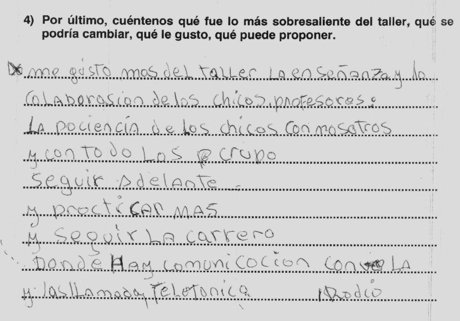 4) Por último, cuéntenos qué fue lo más sobresaliente del taller, qué se
podría cambiar, qué le gusto, qué puede proponer.
me gusto mas del taller la enseñanza y la
colaborasion de los chicos, profesoras:
la paciencia de los chicos con nosotros
y con todo los grupo
seguir adelante.
y practicar mas
y seguir la carrera
Donde Hay comunicacion con la
y las llamada Telefonica Radio